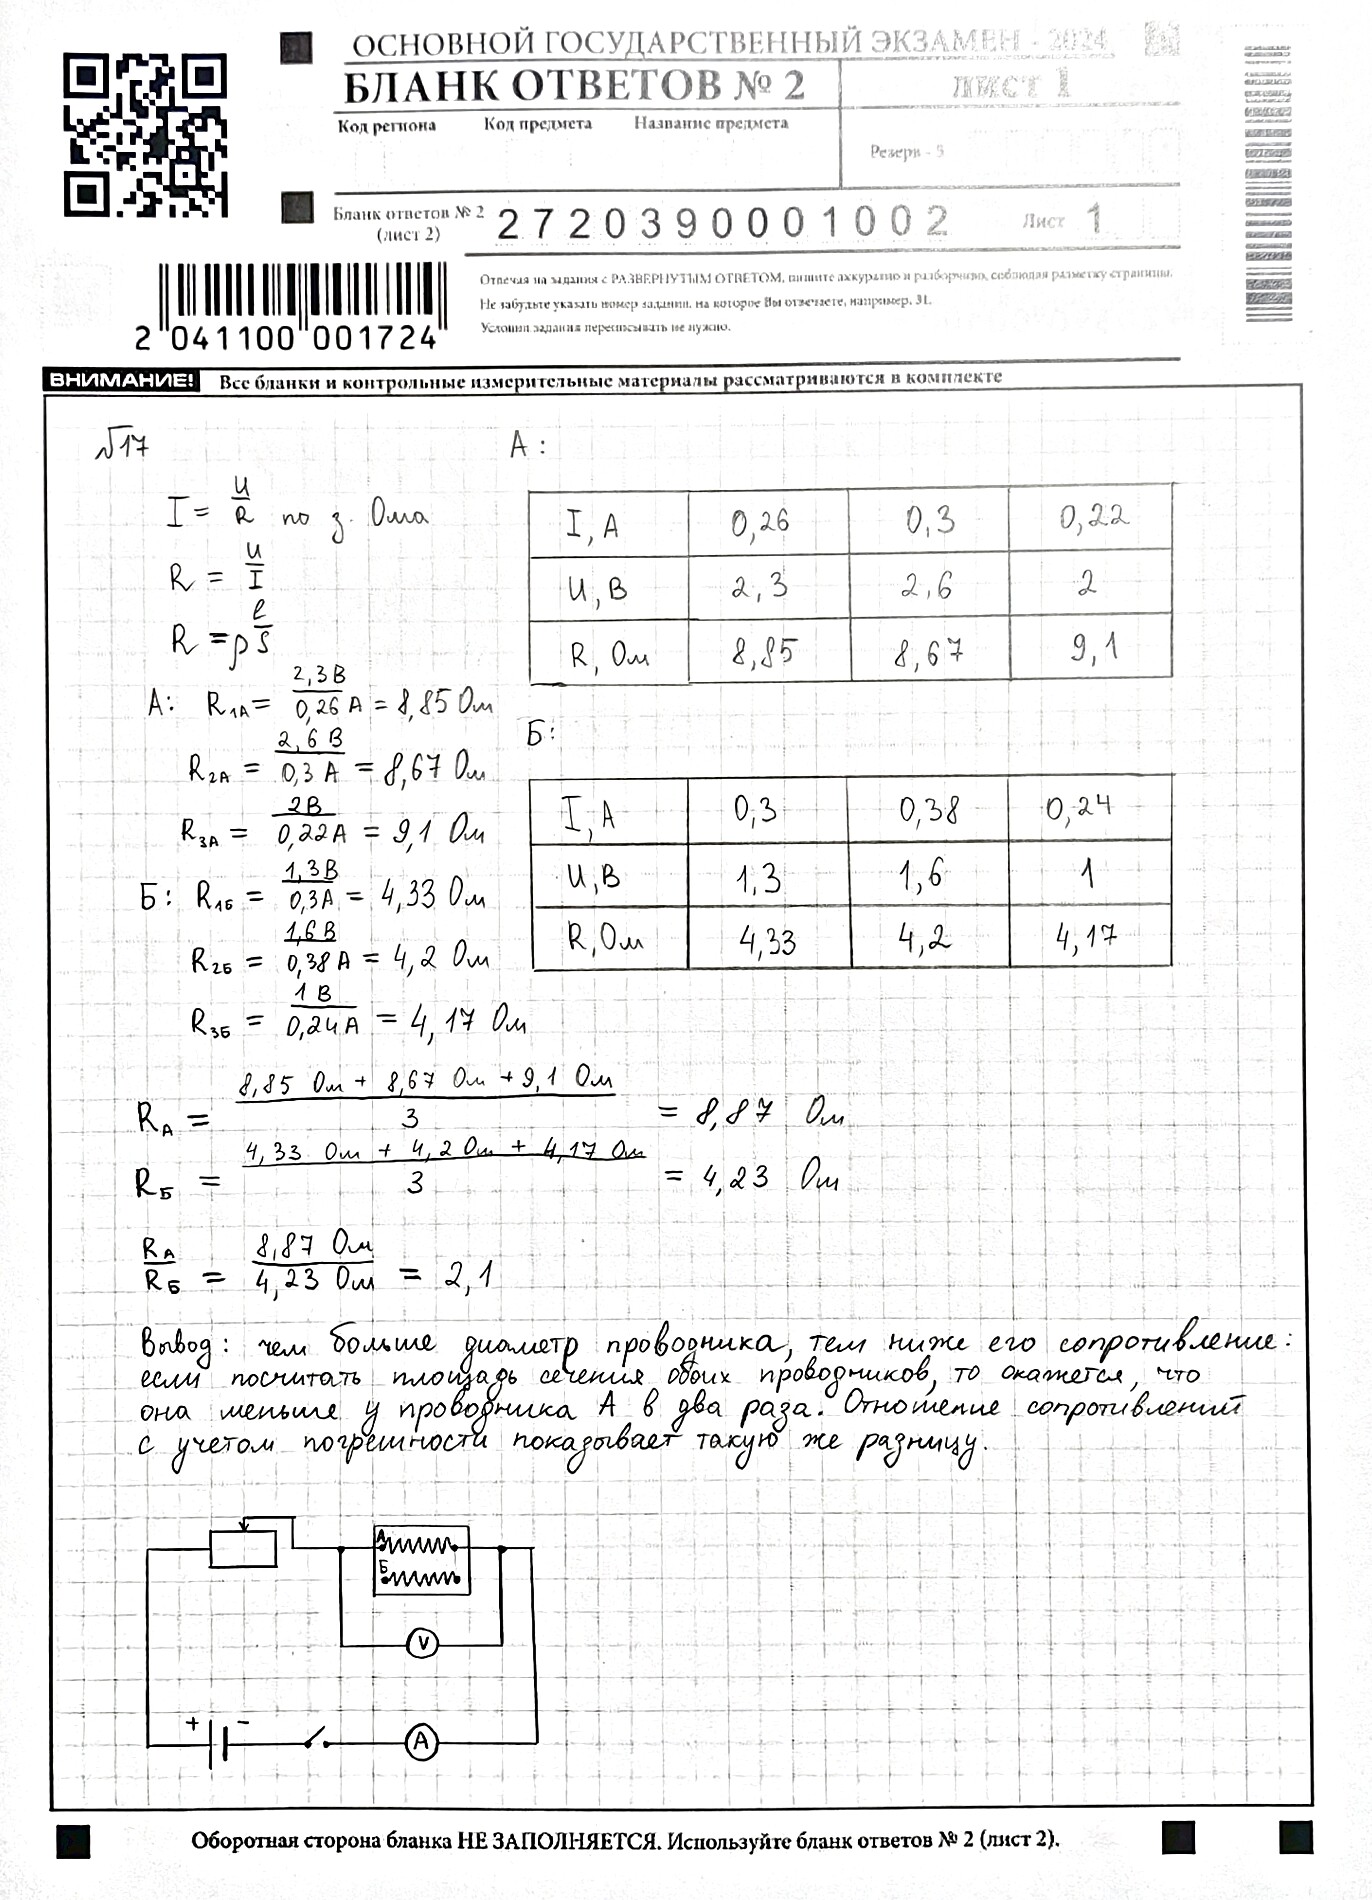 ОСНОВНОЙ ГОСУДАРСТВЕННЫЙ ЭКЗАМЕН - 2024
БЛАНК ОТВЕТОВ № 2
ЛИСТ 1
Код региона Код предмета Название предмета
Резерв - 5
Бланк ответов № 2
(лист 2)
2720390001002
Лист 1
Отвечая на задания с РАЗВЕРНУТЫМ ОТВЕТОМ, пишите аккуратно и разборчиво, соблюдая разметку страницы.
Не забудьте указать номер задания, на которое Вы отвечаете, например, 31.
Условия задания переписывать не нужно.
2 041100 001724
ВНИМАНИЕ! Все бланки и контрольные измерительные материалы рассматриваются в комплекте
√17
I = U/R по з. Ома
R = U/I
R = ρ l/S
А: R1А = 2,3 В / 0,26 А = 8,85 Ом
R2А = 2,6 В / 0,3 А = 8,67 Ом
R3А = 2 В / 0,22 А = 9,1 Ом
Б: R1Б = 1,3 В / 0,3 А = 4,33 Ом
R2Б = 1,6 В / 0,38 А = 4,2 Ом
R3Б = 1 В / 0,24 А = 4,17 Ом
А:
I, А 0,26 0,3 0,22
U, В 2,3 2,6 2
R, Ом 8,85 8,67 9,1
Б:
I, А 0,3 0,38 0,24
U, В 1,3 1,6 1
R, Ом 4,33 4,2 4,17
RА = 8,85 Ом + 8,67 Ом + 9,1 Ом / 3 = 8,87 Ом
RБ = 4,33 Ом + 4,2 Ом + 4,17 Ом / 3 = 4,23 Ом
RА / RБ = 8,87 Ом / 4,23 Ом = 2,1
Вывод: чем больше диаметр проводника, тем ниже его сопротивление:
если посчитать площадь сечения обоих проводников, то окажется, что
она меньше у проводника А в два раза. Отношение сопротивлений
с учетом погрешности показывает такую же разницу.
А
Б
V
+ -
А
Оборотная сторона бланка НЕ ЗАПОЛНЯЕТСЯ. Используйте бланк ответов № 2 (лист 2).